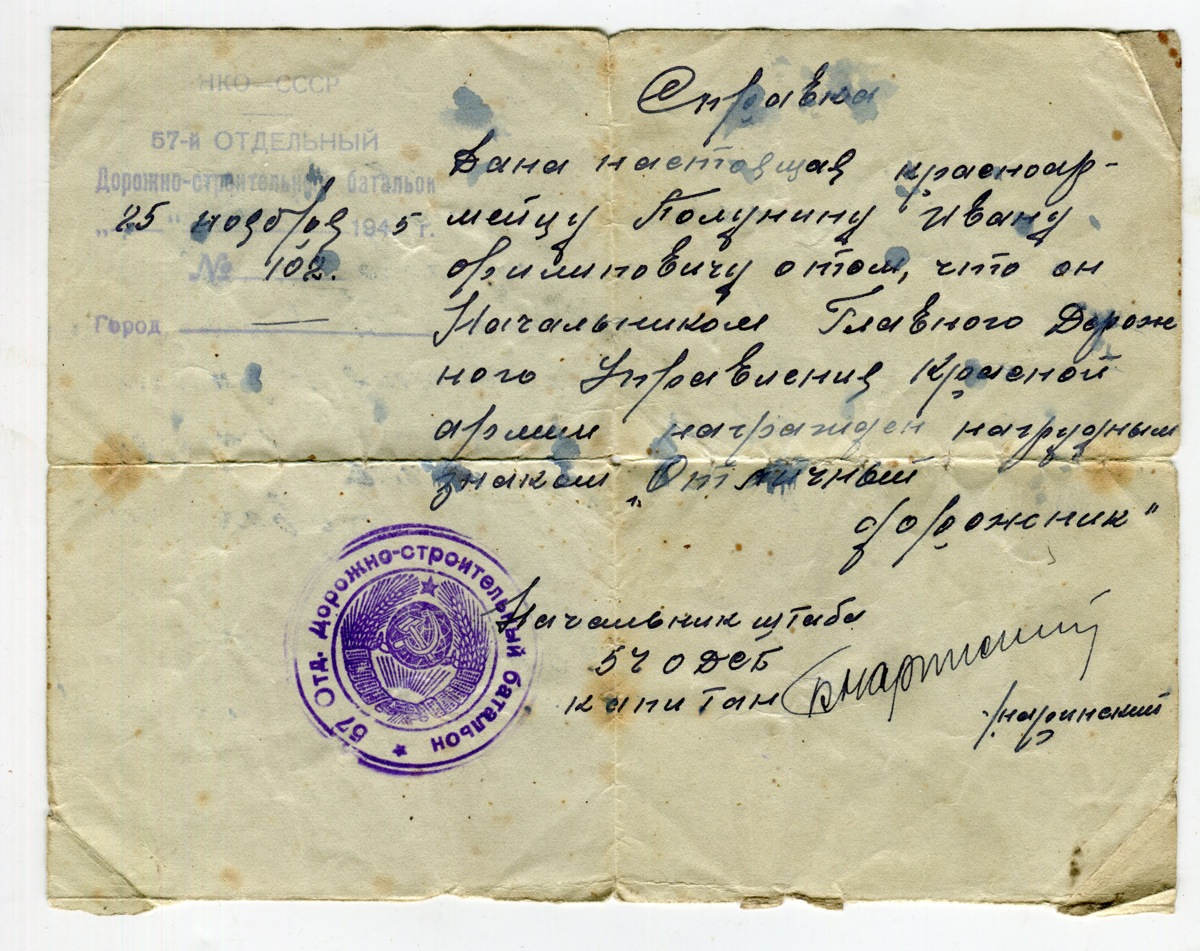 НКО—СССР
57-й ОТДЕЛЬНЫЙ
Дорожно-строительный батальон
25 ноября 1945 г.
№ 102.
Город
Справка
Дана настоящая красноар-
мейцу Полунину Ивану
Филиповичу о том, что он
Начальником Главного Дорож
ного Управления Красной
армии награжден нагрудным
знаком „Отличный
дорожник"
Начальник штаба
57 ОДСБ
капитан
/наринский
57 Отд. Дорожно-строительный батальон